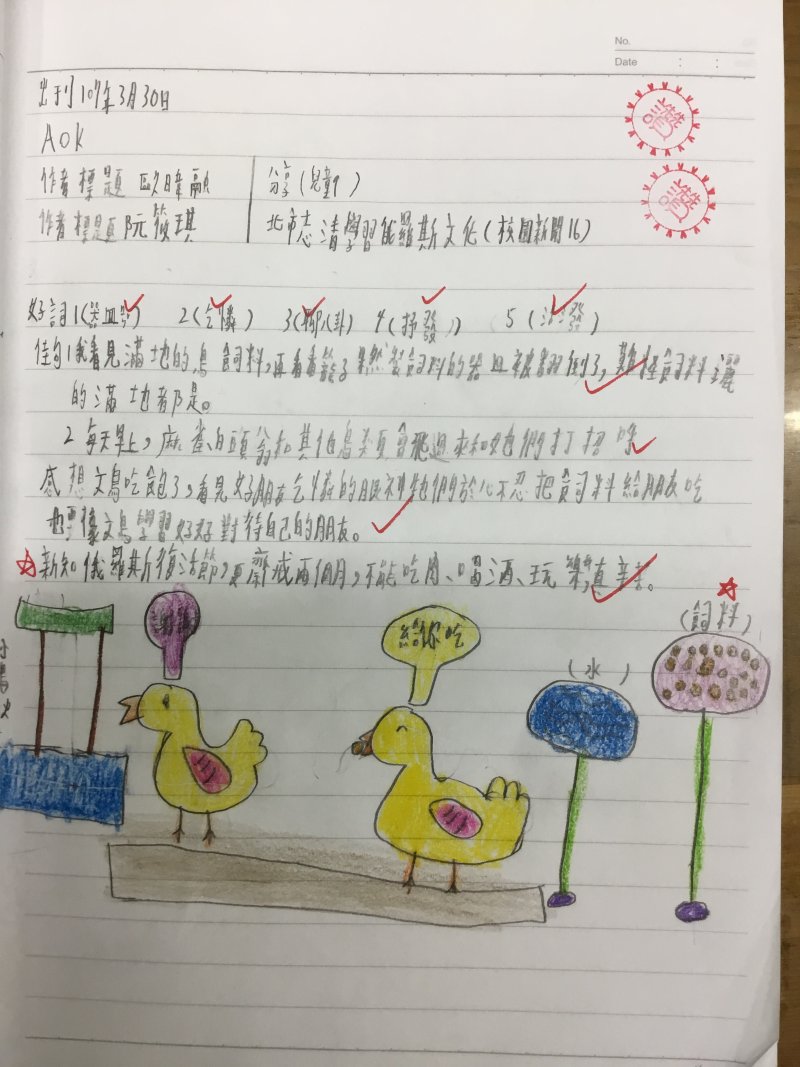 No.
Date : :
出刊107年3月30日
AOK
作者標題 歐暐
分享(兒童 )
作者標題 阮筱琪
北市志清學習俄羅斯文化(校園新聞16)
好詞1(器皿 ) 2(乞憐) 3(聊八卦) 4(抒發) 5( )
佳句1我看見滿地的鳥飼料,再看看籠子果然裝飼料的器皿被 倒了,難怪飼料灑
的滿地都是。
2每天早上,麻雀白頭翁和其他鳥類會飛過來和牠們打招呼
感想文鳥吃飽了,看見好朋友乞憐的眼神牠們於心不忍把飼料給朋友吃
也要像文鳥學習好好對待自己的朋友。
新知俄羅斯復活節,要齋戒兩個月,不能吃肉、喝酒、玩樂,真辛苦。
給你吃
(水)
(飼料)